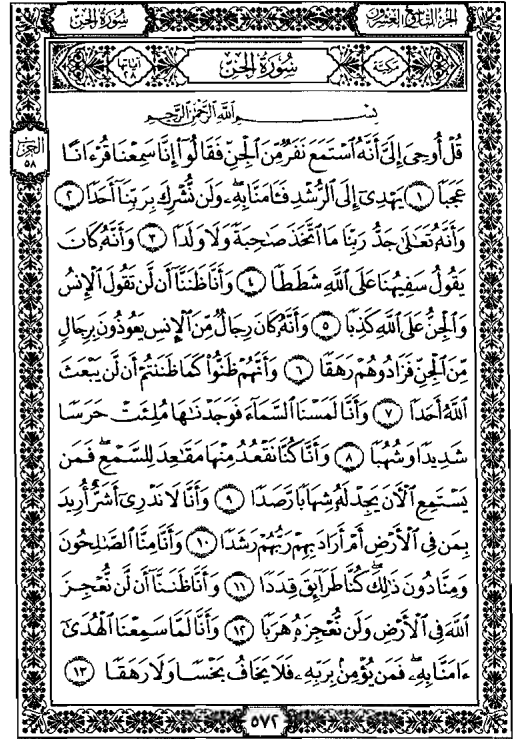 الجزء التاسع والعشرون
سورة الجن
مكية
سورة الجن
آياتها ٢٨
بِسْمِ اللَّهِ الرَّحْمَٰنِ الرَّحِيمِ
الحزب ٥٨
قُلْ أُوحِيَ إِلَيَّ أَنَّهُ ٱسْتَمَعَ نَفَرٌ مِّنَ ٱلْجِنِّ فَقَالُوٓا۟ إِنَّا سَمِعْنَا قُرْءَانًا
عَجَبًا ١ يَهْدِىٓ إِلَى ٱلرُّشْدِ فَـَٔامَنَّا بِهِۦ وَلَن نُّشْرِكَ بِرَبِّنَآ أَحَدًا ٢
وَأَنَّهُۥ تَعَٰلَىٰ جَدُّ رَبِّنَا مَا ٱتَّخَذَ صَٰحِبَةً وَلَا وَلَدًا ٣ وَأَنَّهُۥ كَانَ
يَقُولُ سَفِيهُنَا عَلَى ٱللَّهِ شَطَطًا ٤ وَأَنَّا ظَنَنَّآ أَن لَّن تَقُولَ ٱلْإِنسُ
وَٱلْجِنُّ عَلَى ٱللَّهِ كَذِبًا ٥ وَأَنَّهُۥ كَانَ رِجَالٌ مِّنَ ٱلْإِنسِ يَعُوذُونَ بِرِجَالٍ
مِّنَ ٱلْجِنِّ فَزَادُوهُمْ رَهَقًا ٦ وَأَنَّهُمْ ظَنُّوا۟ كَمَا ظَنَنتُمْ أَن لَّن يَبْعَثَ
ٱللَّهُ أَحَدًا ٧ وَأَنَّا لَمَسْنَا ٱلسَّمَآءَ فَوَجَدْنَٰهَا مُلِئَتْ حَرَسًا
شَدِيدًا وَشُهُبًا ٨ وَأَنَّا كُنَّا نَقْعُدُ مِنْهَا مَقَٰعِدَ لِلسَّمْعِ ۖ فَمَن
يَسْتَمِعِ ٱلْـَٔانَ يَجِدْ لَهُۥ شِهَابًا رَّصَدًا ٩ وَأَنَّا لَا نَدْرِىٓ أَشَرٌّ أُرِيدَ
بِمَن فِى ٱلْأَرْضِ أَمْ أَرَادَ بِهِمْ رَبُّهُمْ رَشَدًا ١٠ وَأَنَّا مِنَّا ٱلصَّٰلِحُونَ
وَمِنَّا دُونَ ذَٰلِكَ ۖ كُنَّا طَرَآئِقَ قِدَدًا ١١ وَأَنَّا ظَنَنَّآ أَن لَّن نُّعْجِزَ
ٱللَّهَ فِى ٱلْأَرْضِ وَلَن نُّعْجِزَهُۥ هَرَبًا ١٢ وَأَنَّا لَمَّا سَمِعْنَا ٱلْهُدَىٰٓ
ءَامَنَّا بِهِۦ ۖ فَمَن يُؤْمِنۢ بِرَبِّهِۦ فَلَا يَخَافُ بَخْسًا وَلَا رَهَقًا ١٣
٥٧٢